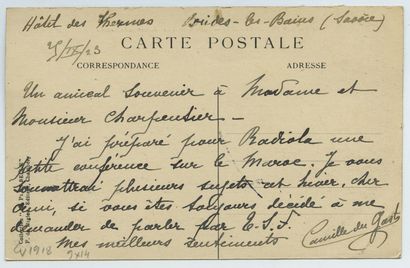 Hôtel des Thermes Brides-les-Bains (Savoie)
5/IX/23
CARTE POSTALE
CORRESPONDANCE ADRESSE
Un amical souvenir à Madame et
Monsieur Charpentier -
J'ai préparé pour Radiola une
petite conférence sur le Maroc. Je vous
soumettrai plusieurs sujets cet hiver, cher
ami, si vous êtes toujours décidé à me
demander de parler par T.S.F.
Mes meilleurs sentiments
Camille du Gast
V1918
9x14